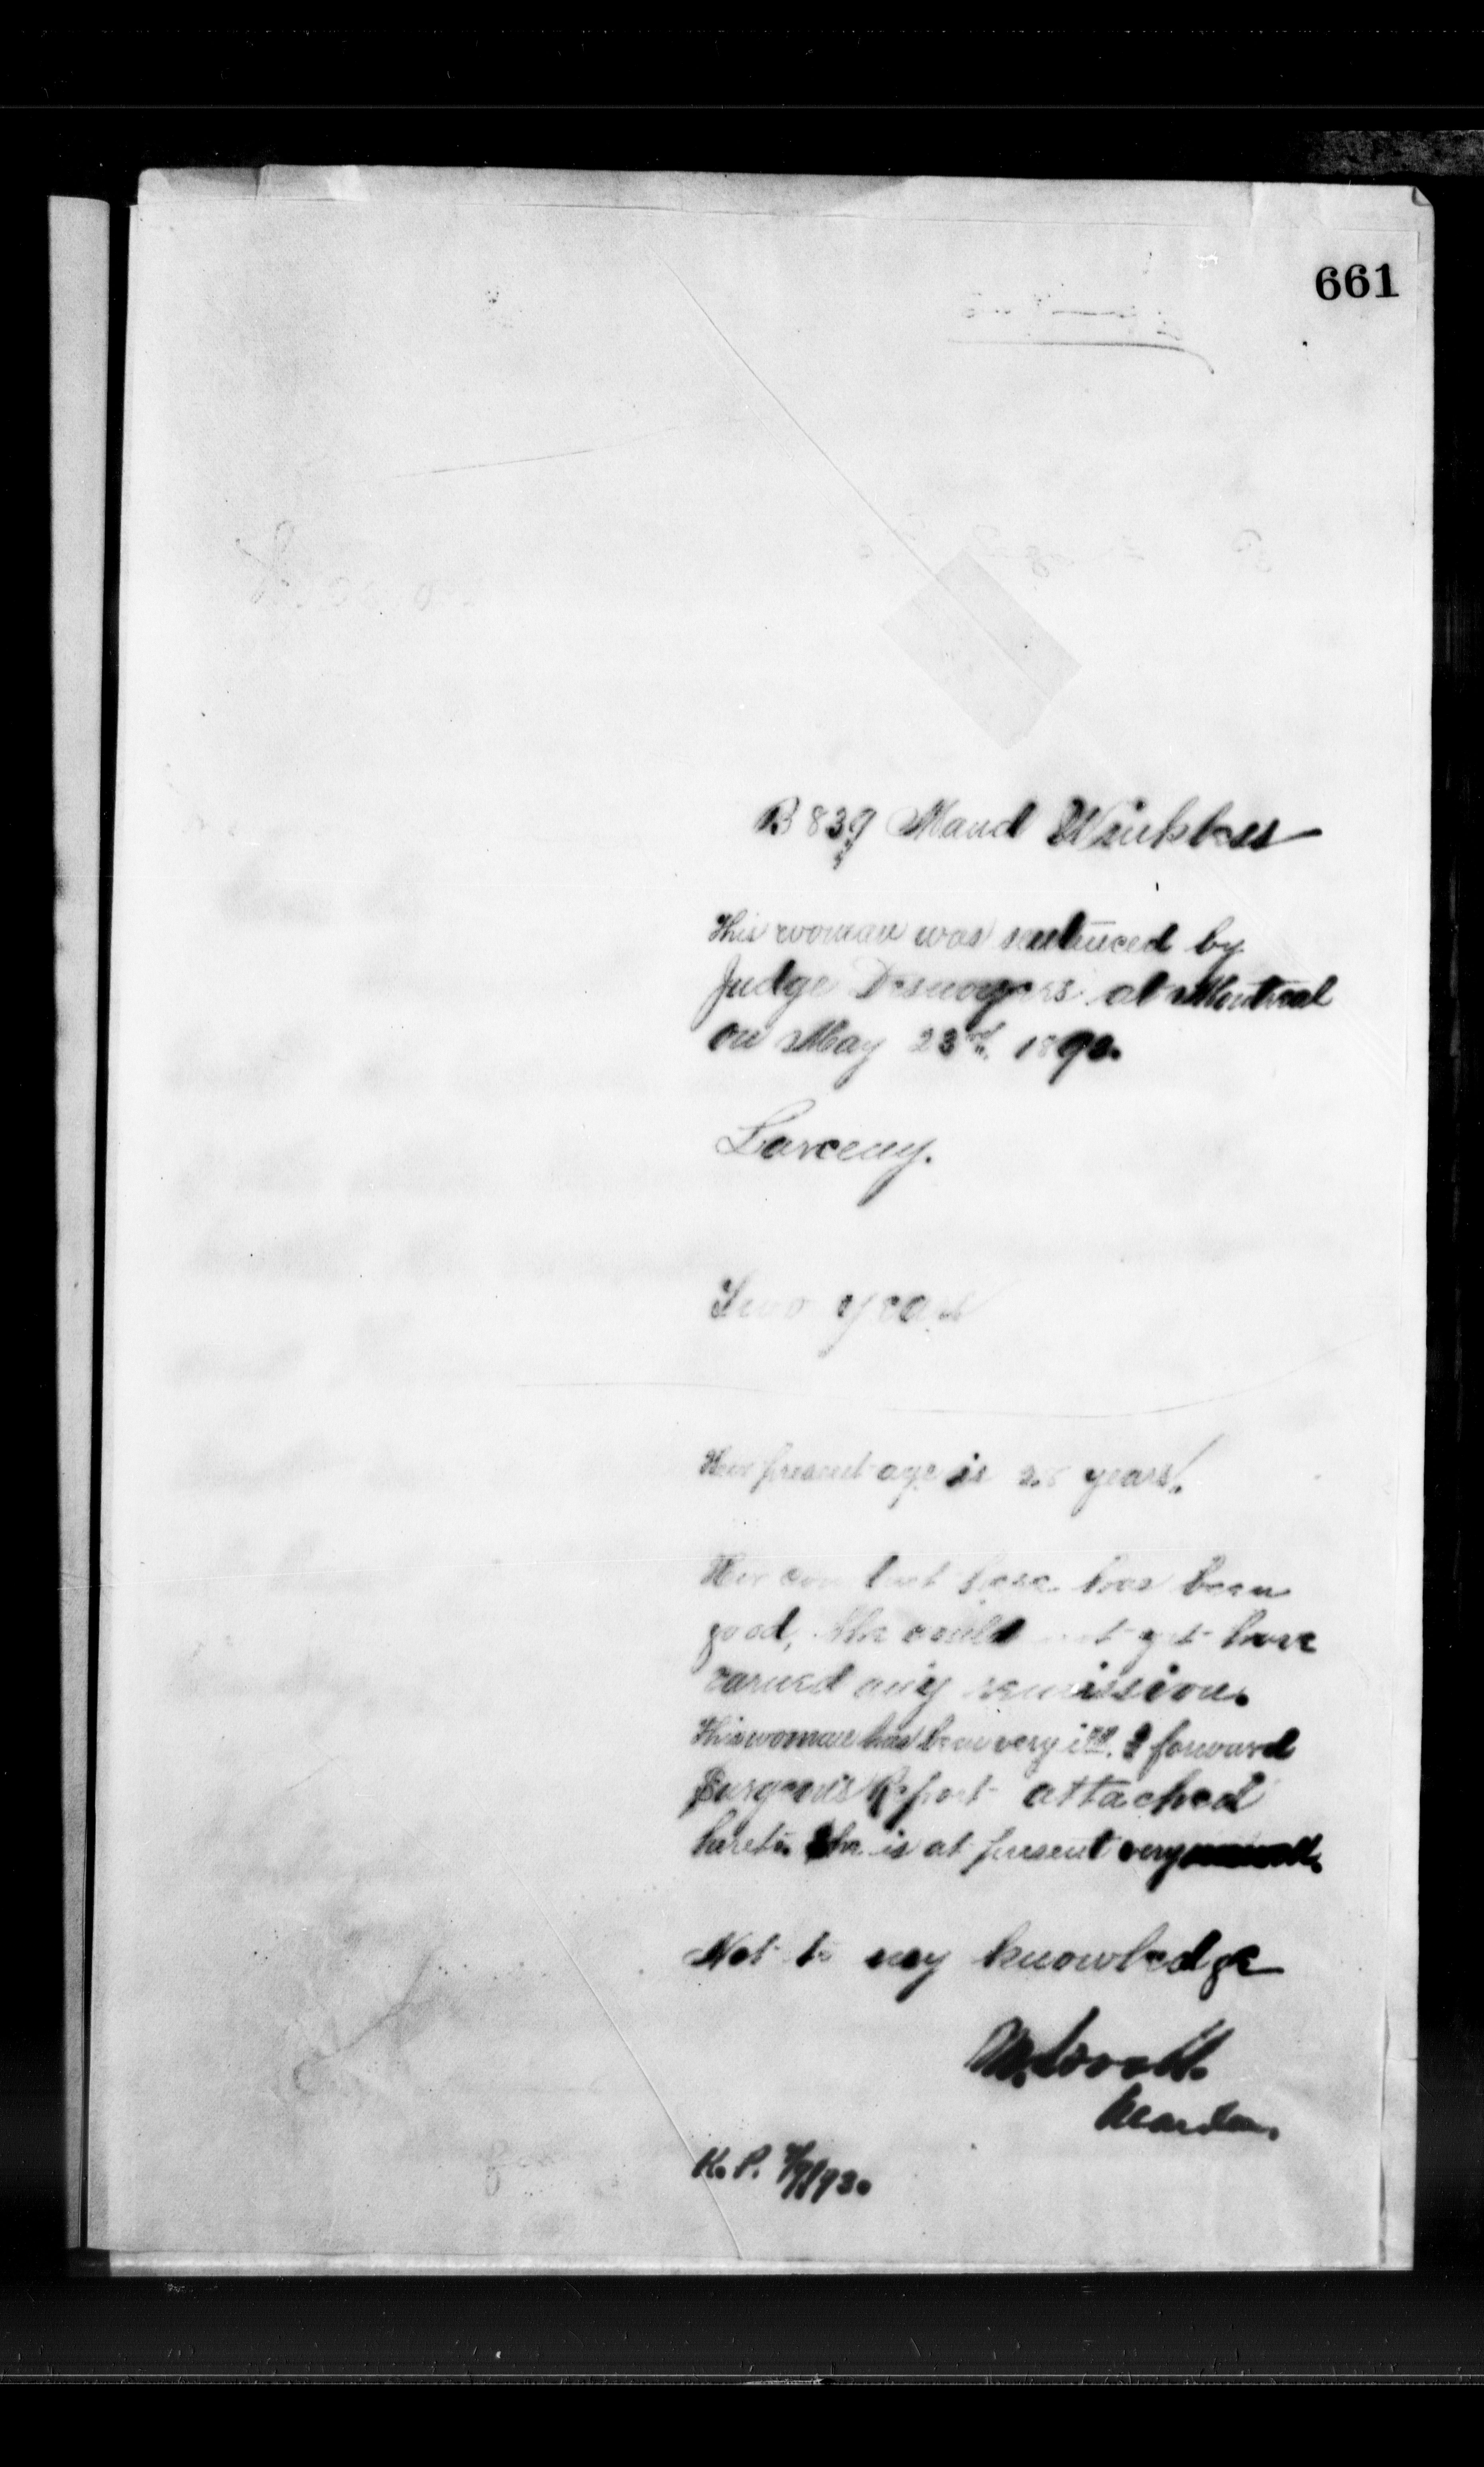 661
B 839 Maud
This woman was sentenced by
Judge Desnoyers at Montreal
on May 23rd.
Larceny.
Two years
Her present age is years.
Her conduct here has been
good, She could not yet have
earned any remission.
This woman has been very ill. I forward
Surgeon's Report attached
hereto. She is at present very
Not to my knowledge
Warden.
K. P.